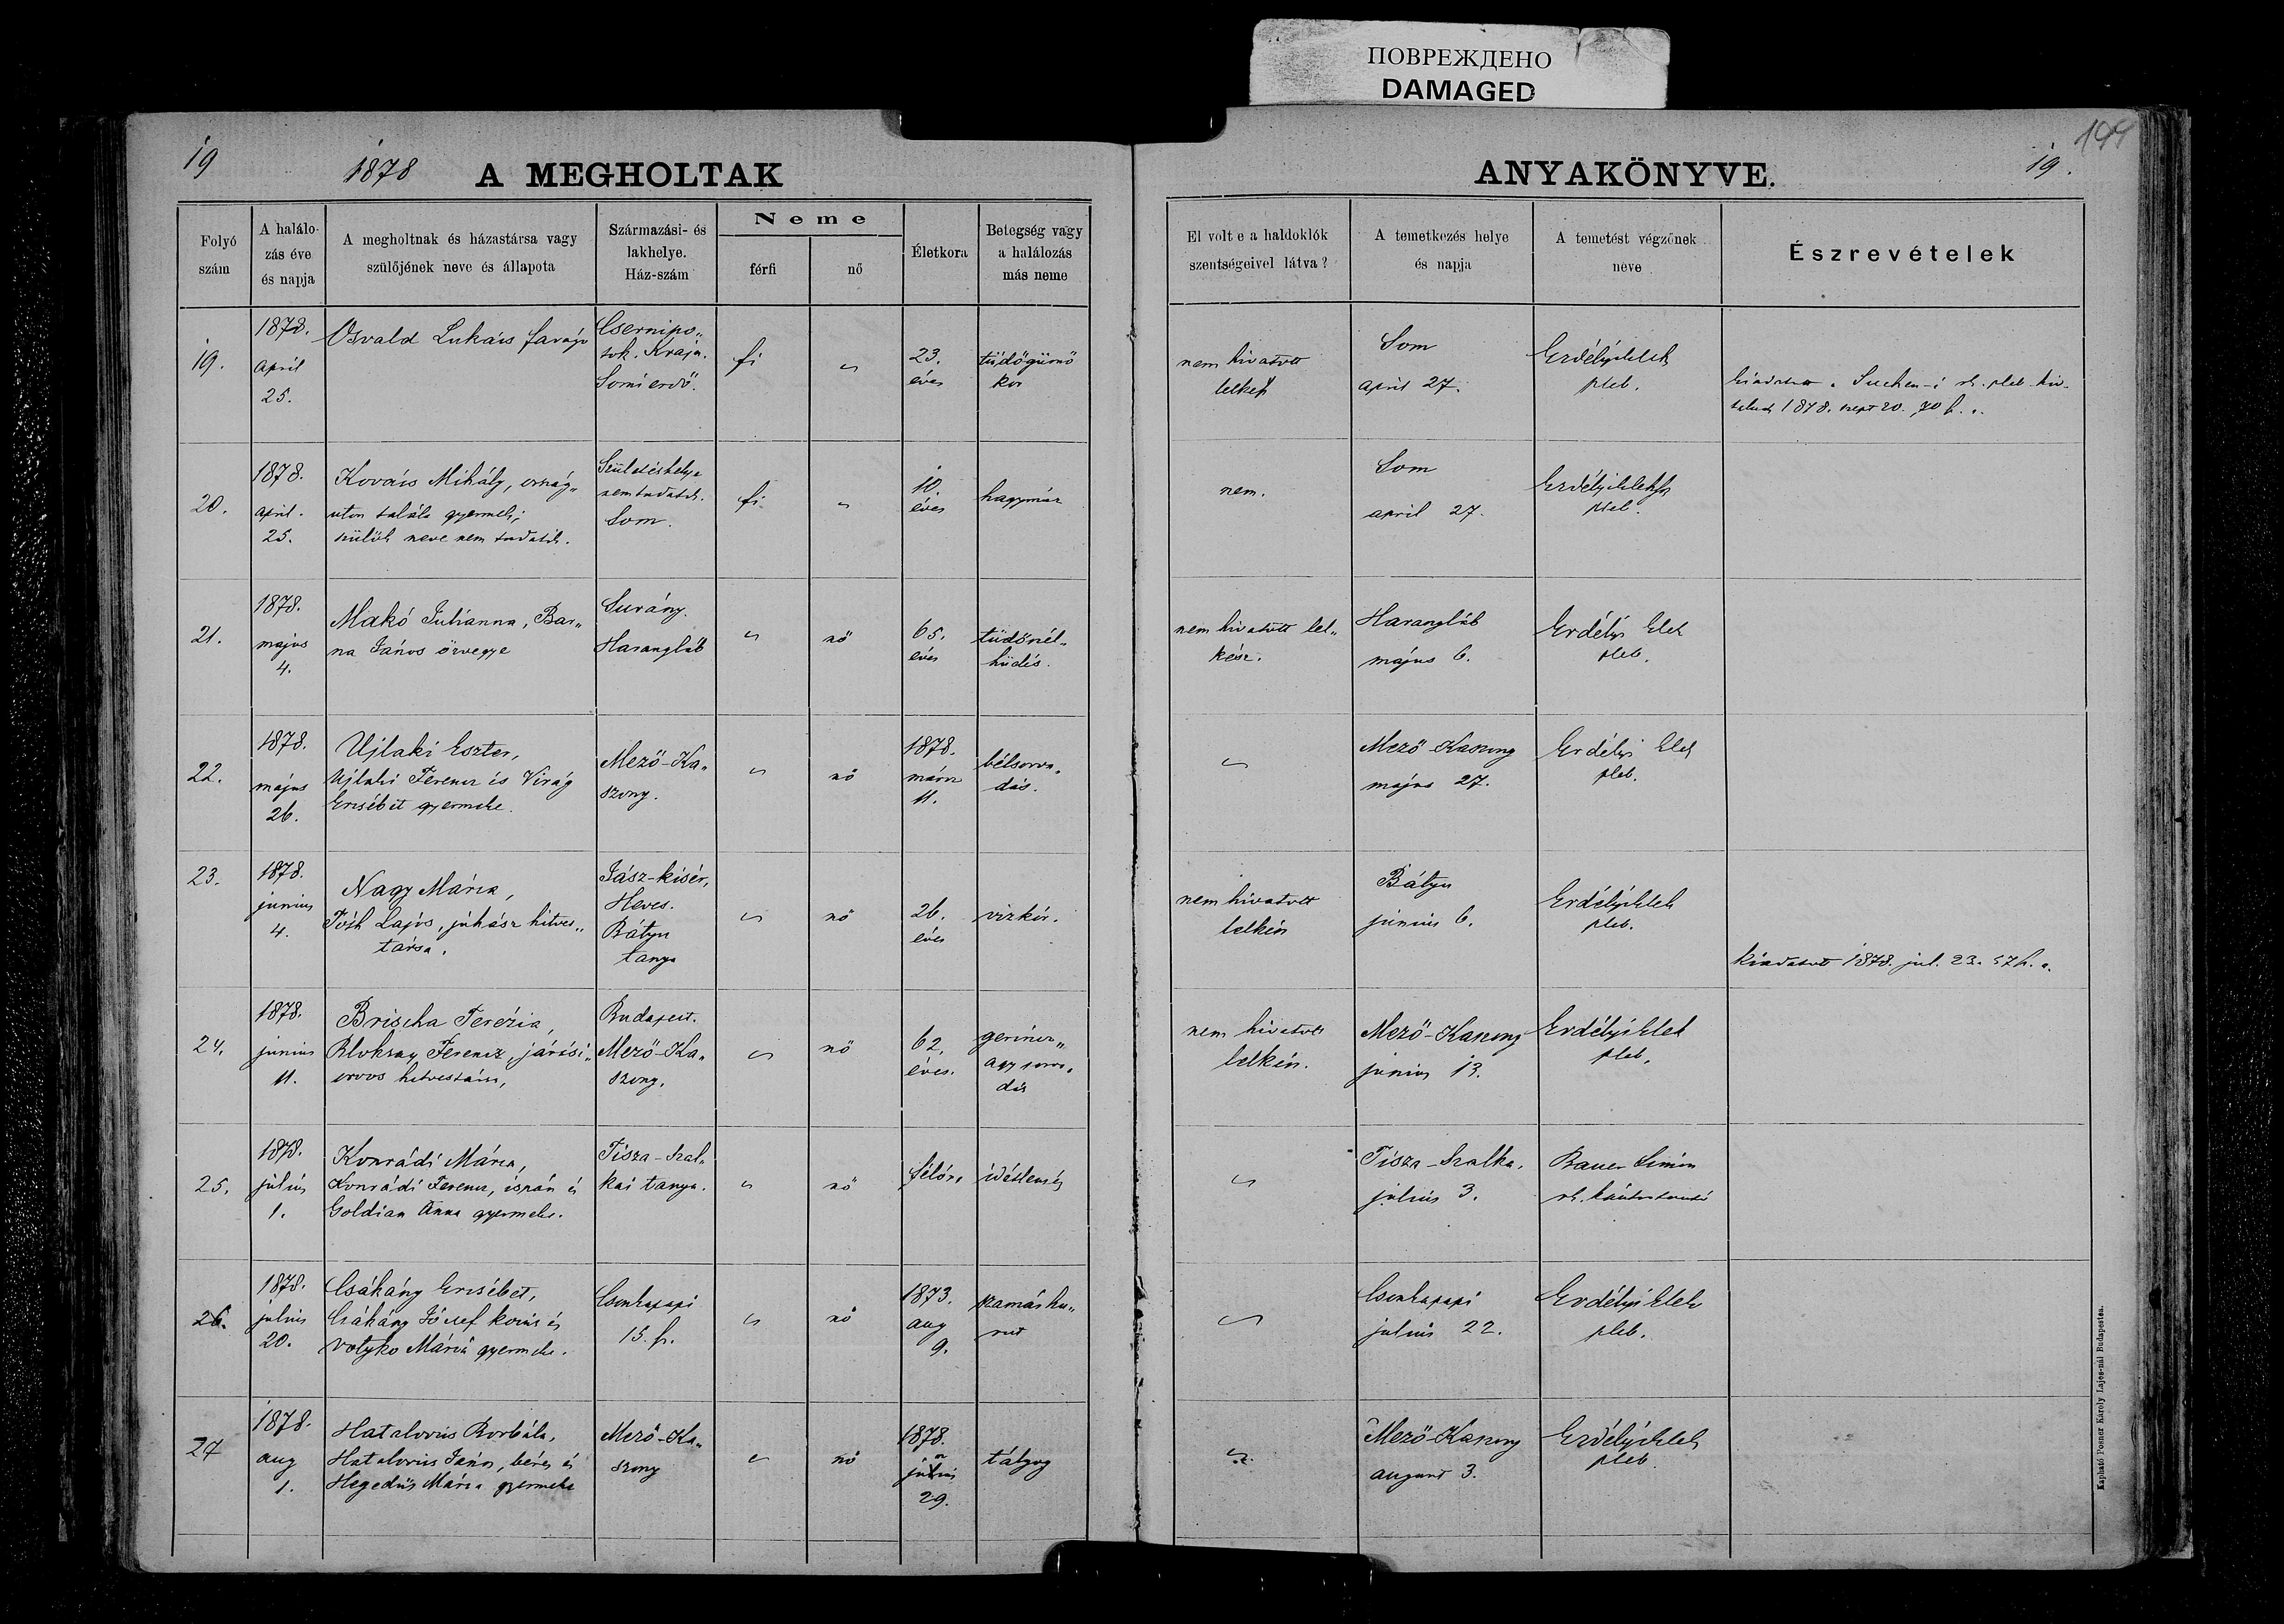 ПОВРЕЖДЕНО
DAMAGED
19
1878
A MEGHOLTAK
ANYAKÖNYVE.
19.
199
Folyó
szám
A halálo-
zás éve
és napja
A megholtnak és házastársa vagy
szülőjének neve és állapota
Származási- és
lakhelye.
Ház-szám
Neme
férfi
nő
Életkora
Betegség vagy
a halálozás
más neme
El volt e a haldoklók
szentségeivel látva?
A temetkezés helye
és napja
A temetést végzőnek
neve
Észrevételek
19.
1878.
april
25.
Osvald Lukács favágó
Csernipo„
tok. Kraja.
Somi erdő.
fi
23.
éves
tüdőgümő
kor
nem hivatott
Som
april 27.
Erdélyi Elek
pleb.
1878. sept 20. 70 f.
20.
1878.
april.
25.
Kovács Mihály,ország„
uton talált gyermek;
szülők neve nem tudatik.
Születéshelye
nem tudatik.
Som.
fi.
10.
éves
hagymáz
nem.
Som
april 27.
Erdélyi Elek
pleb.
21.
1878.
majus
4.
Makó Julianna, Bar„
na János özvegye
Surány.
Harangláb
nő
65.
éves
tüdőszél„
hüdés.
nem hivatott lel„
kész.
Harangláb
május 6.
Erdélyi Elek
pleb.
22.
1878.
május
26.
Ujlaki Eszter,
Ujlaki Ferencz és Virág
Erzsébet gyermeke.
Mező-Ka„
szony.
nő
1878.
márcz
11.
bélsorva„
dás.
Mező-Kaszony
május 27.
Erdélyi Elek
pleb.
23.
1878.
junius
4.
Nagy Mária,
Tóth Lajos, juhász hitves„
társa.
Jász-kisér,
Heves.
Bátyu
tanya
nő
26.
éves
vizkór.
nem hivatott
lelkész
Bátyu
június 6.
Erdélyi Elek
pleb.
kiadatott 1878. jul. 23. 57 f. a.
24.
1878.
junius
11.
Brischa Terézia,
Bloksay Ferencz, járási„
orvos hitvestársa,
Budapest.
Mező-Ka„
szony.
nő
62.
éves.
gerincz„
agy sorva„
dás
nem hivatott
lelkész.
Mező-Kaszony
június 13.
Erdélyi Elek
pleb.
25.
1878.
július
1.
Konrádi Mária,
Konrádi Ferencz, ispán és
Goldian Anna gyermeke.
Tisza-Szal„
kai tanya.
nő
félóra
idétlenség
Tisza-Szalka.
július 3.
Bauer Simon
rk. kántortanító
26.
1878.
július
20.
Csákány Erzsébet,
Csákány József kocsis és
Votyko Mária gyermeke.
Csonkapapi
15. fr.
nő
1873.
aug
9.
szamárhu„
rut
Csonkapapi
julius 22.
Erdélyi Elek
pleb.
27
1878.
aug
1.
Hatalovics Borbála,
Hatalovics János, béres és
Hegedüs Mária gyermeke
Mező-Ka„
szony
nő
1878.
július
29.
tályog
Mező-Kaszony
august 3.
Erdélyi Elek
pleb.
Kapható Posner Károly Lajos-nál Budapesten.